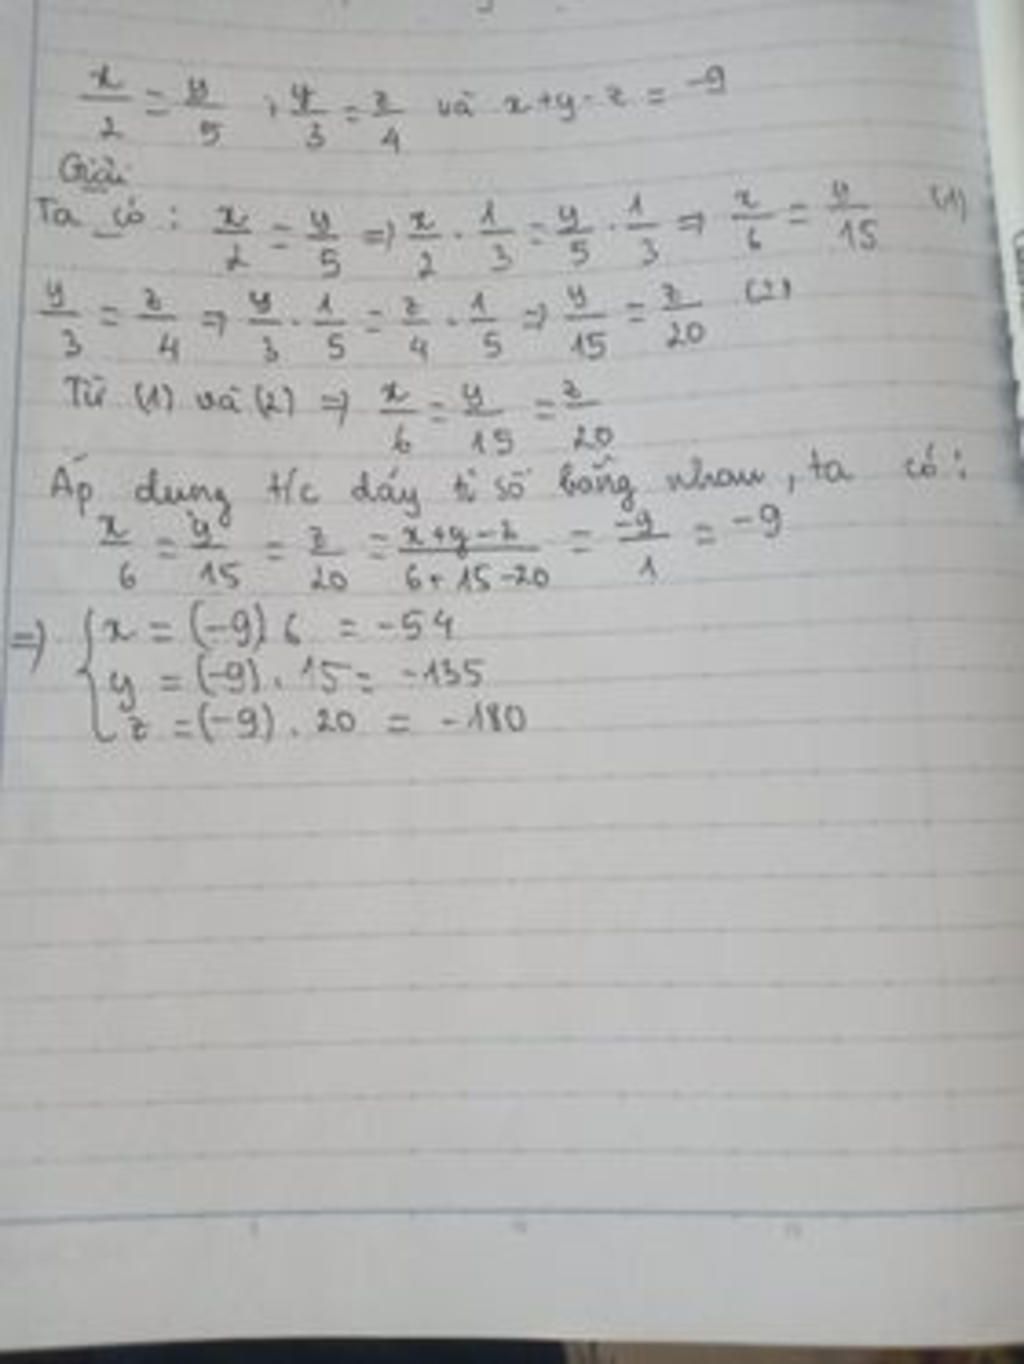 x/2 = y/5 , y/3 = z/4 và x+y-z = -9
Giải
Ta có : x/2 = y/5 => x/2 . 1/3 = y/5 . 1/3 => x/6 = y/15 (1)
y/3 = z/4 => y/3 . 1/5 = z/4 . 1/5 => y/15 = z/20 (2)
Từ (1) và (2) => x/6 = y/15 = z/20
Áp dụng t/c dãy tỉ số bằng nhau, ta có :
x/6 = y/15 = z/20 = (x+y-z)/(6+15-20) = -9/1 = -9
=> { x = (-9) 6 = -54
y = (-9) . 15 = -135
z = (-9) . 20 = -180